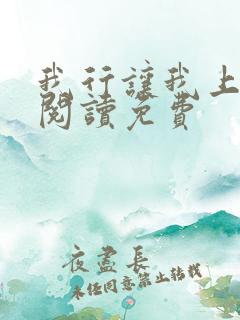 我行讓我上
閱讀免費
夜盡長
未經同意禁止轉載